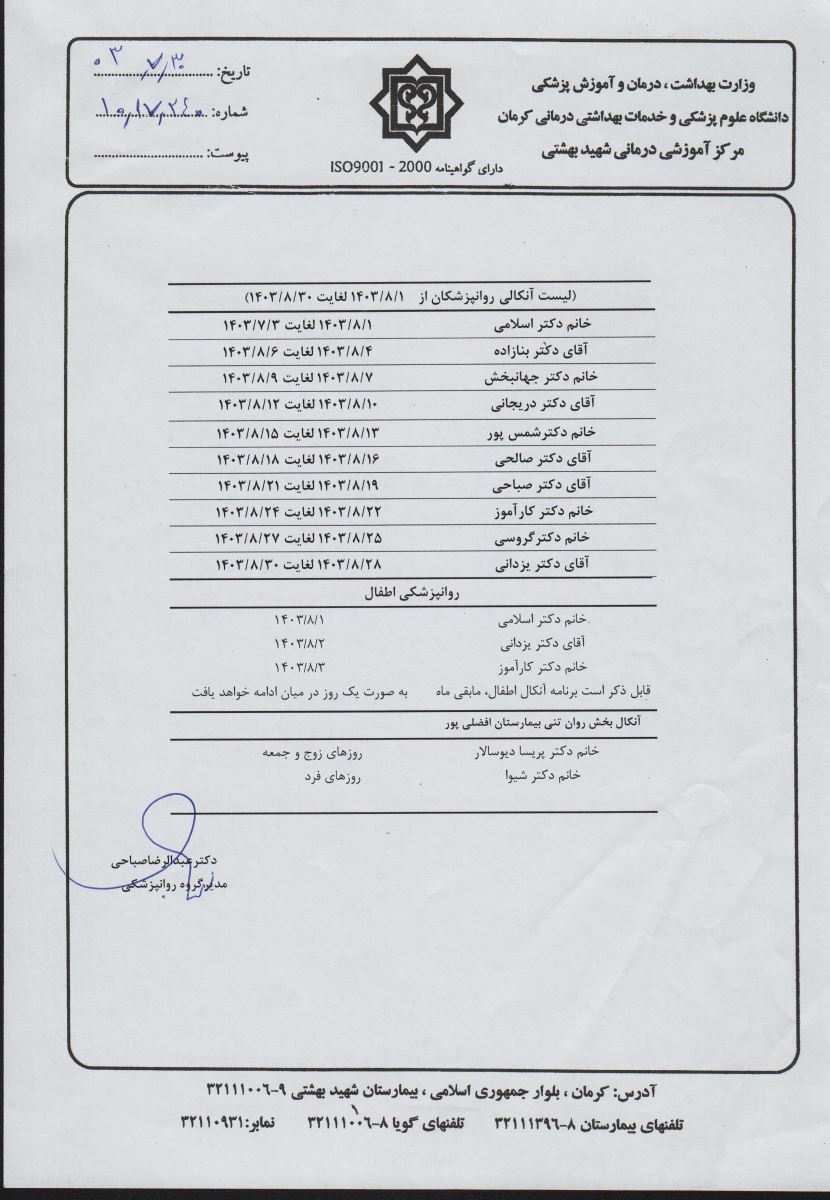 وزارت بهداشت، درمان و آموزش پزشکی
دانشگاه علوم پزشکی و خدمات بهداشتی درمانی کرمان
مرکز آموزشی درمانی شهید بهشتی
دارای گواهینامه ISO9001 - 2000
تاریخ: ۰۳/۷/۳۰
شماره:
پیوست:
(لیست آنکالی روانپزشکان از ۱۴۰۳/۸/۱ لغایت ۱۴۰۳/۸/۳۰)
خانم دکتر اسلامی ۱۴۰۳/۸/۱ لغایت ۱۴۰۳/۷/۳
آقای دکتر بنازاده ۱۴۰۳/۸/۴ لغایت ۱۴۰۳/۸/۶
خانم دکتر جهانبخش ۱۴۰۳/۸/۷ لغایت ۱۴۰۳/۸/۹
آقای دکتر دریجانی ۱۴۰۳/۸/۱۰ لغایت ۱۴۰۳/۸/۱۲
خانم دکترشمس پور ۱۴۰۳/۸/۱۳ لغایت ۱۴۰۳/۸/۱۵
آقای دکتر صالحی ۱۴۰۳/۸/۱۶ لغایت ۱۴۰۳/۸/۱۸
آقای دکتر صباحی ۱۴۰۳/۸/۱۹ لغایت ۱۴۰۳/۸/۲۱
خانم دکتر کارآموز ۱۴۰۳/۸/۲۲ لغایت ۱۴۰۳/۸/۲۴
خانم دکترگروسی ۱۴۰۳/۸/۲۵ لغایت ۱۴۰۳/۸/۲۷
آقای دکتر یزدانی ۱۴۰۳/۸/۲۸ لغایت ۱۴۰۳/۸/۳۰
روانپزشکی اطفال
خانم دکتر اسلامی ۱۴۰۳/۸/۱
آقای دکتر یزدانی ۱۴۰۳/۸/۲
خانم دکتر کارآموز ۱۴۰۳/۸/۳
قابل ذکر است برنامه آنکال اطفال، مابقی ماه به صورت یک روز در میان ادامه خواهد یافت
آنکال بخش روان تنی بیمارستان افضلی پور
خانم دکتر پریسا دیوسالار روزهای زوج و جمعه
خانم دکتر شیوا روزهای فرد
دکترعبدالرضاصباحی
مدیرگروه روانپزشکی
آدرس: کرمان، بلوار جمهوری اسلامی، بیمارستان شهید بهشتی ۹-۳۲۱۱۱۰۰۶
تلفنهای بیمارستان ۸-۳۲۱۱۱۳۹۶ تلفنهای گویا ۸-۳۲۱۱۱۰۰۶ نمابر:۳۲۱۱۰۹۳۱